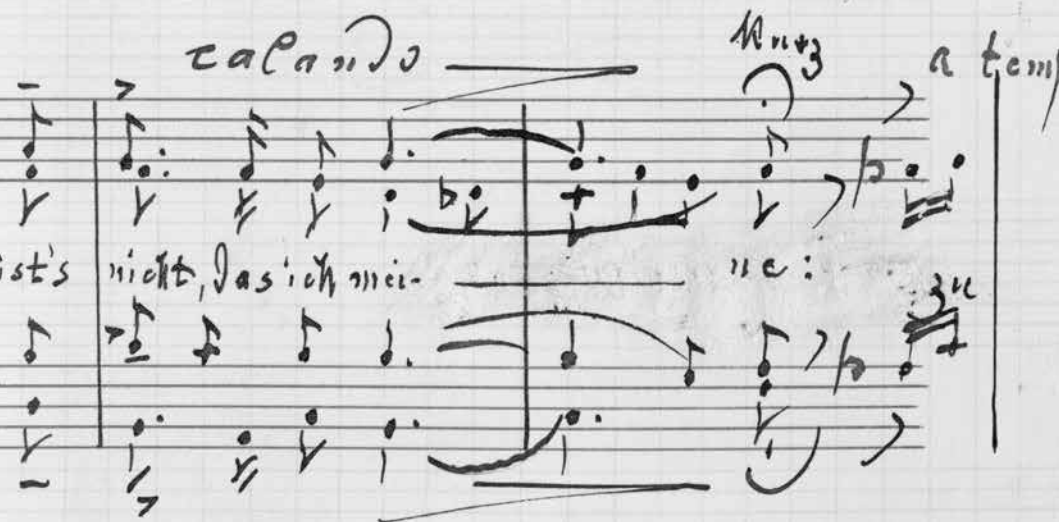 calando kurz a temp
p
ist's nicht, das ich mei- ne:
zu
p